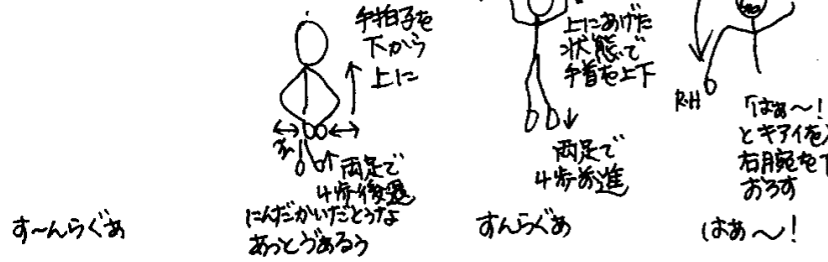 手拍子を
下から
上に
両足で
4歩後退
上にあげた
状態で
手首を上下
両足で
4歩前進
R.H
「はぁ〜!
とキアイを入
右腕を下
おろす
す〜んらぐぁ
にんだかいだとうな
あっとうあるぅ
すんらぐぁ
はぁ〜!